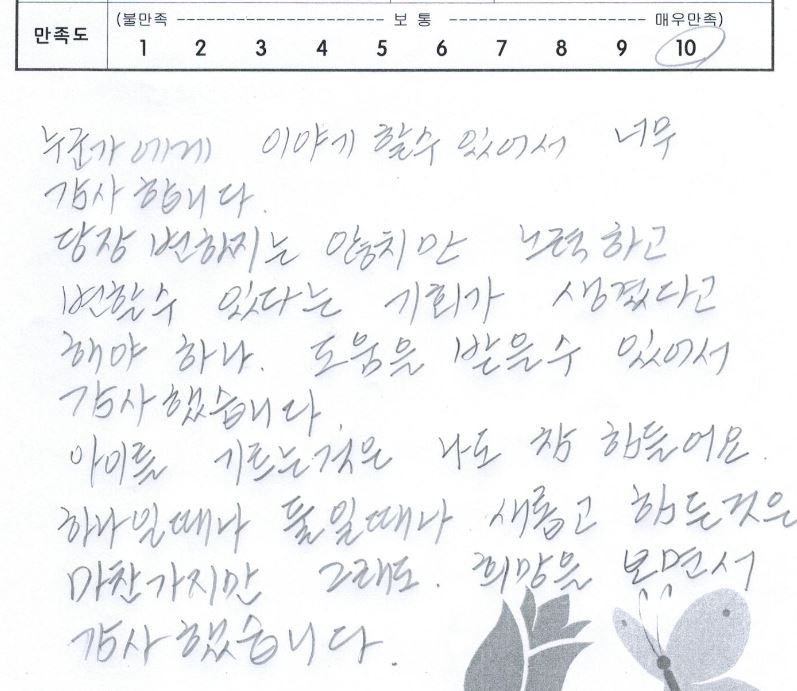 만족도
(불만족 ---------- 보 통 ---------- 매우만족)
1 2 3 4 5 6 7 8 9 10
누군가에게 이야기 할수 있어서 너무
감사 합니다.
당장 변하지는 않치만 노력하고
변할수 있다는 기회가 생겼다고
해야 하나. 도움을 받을수 있어서
감사했습니다.
아이를 기르는것은 나도 참 힘들어요.
하나일때나 둘일때나 새롭고 힘든것은
마찬가지만 그래도. 희망을 보면서
감사했습니다.